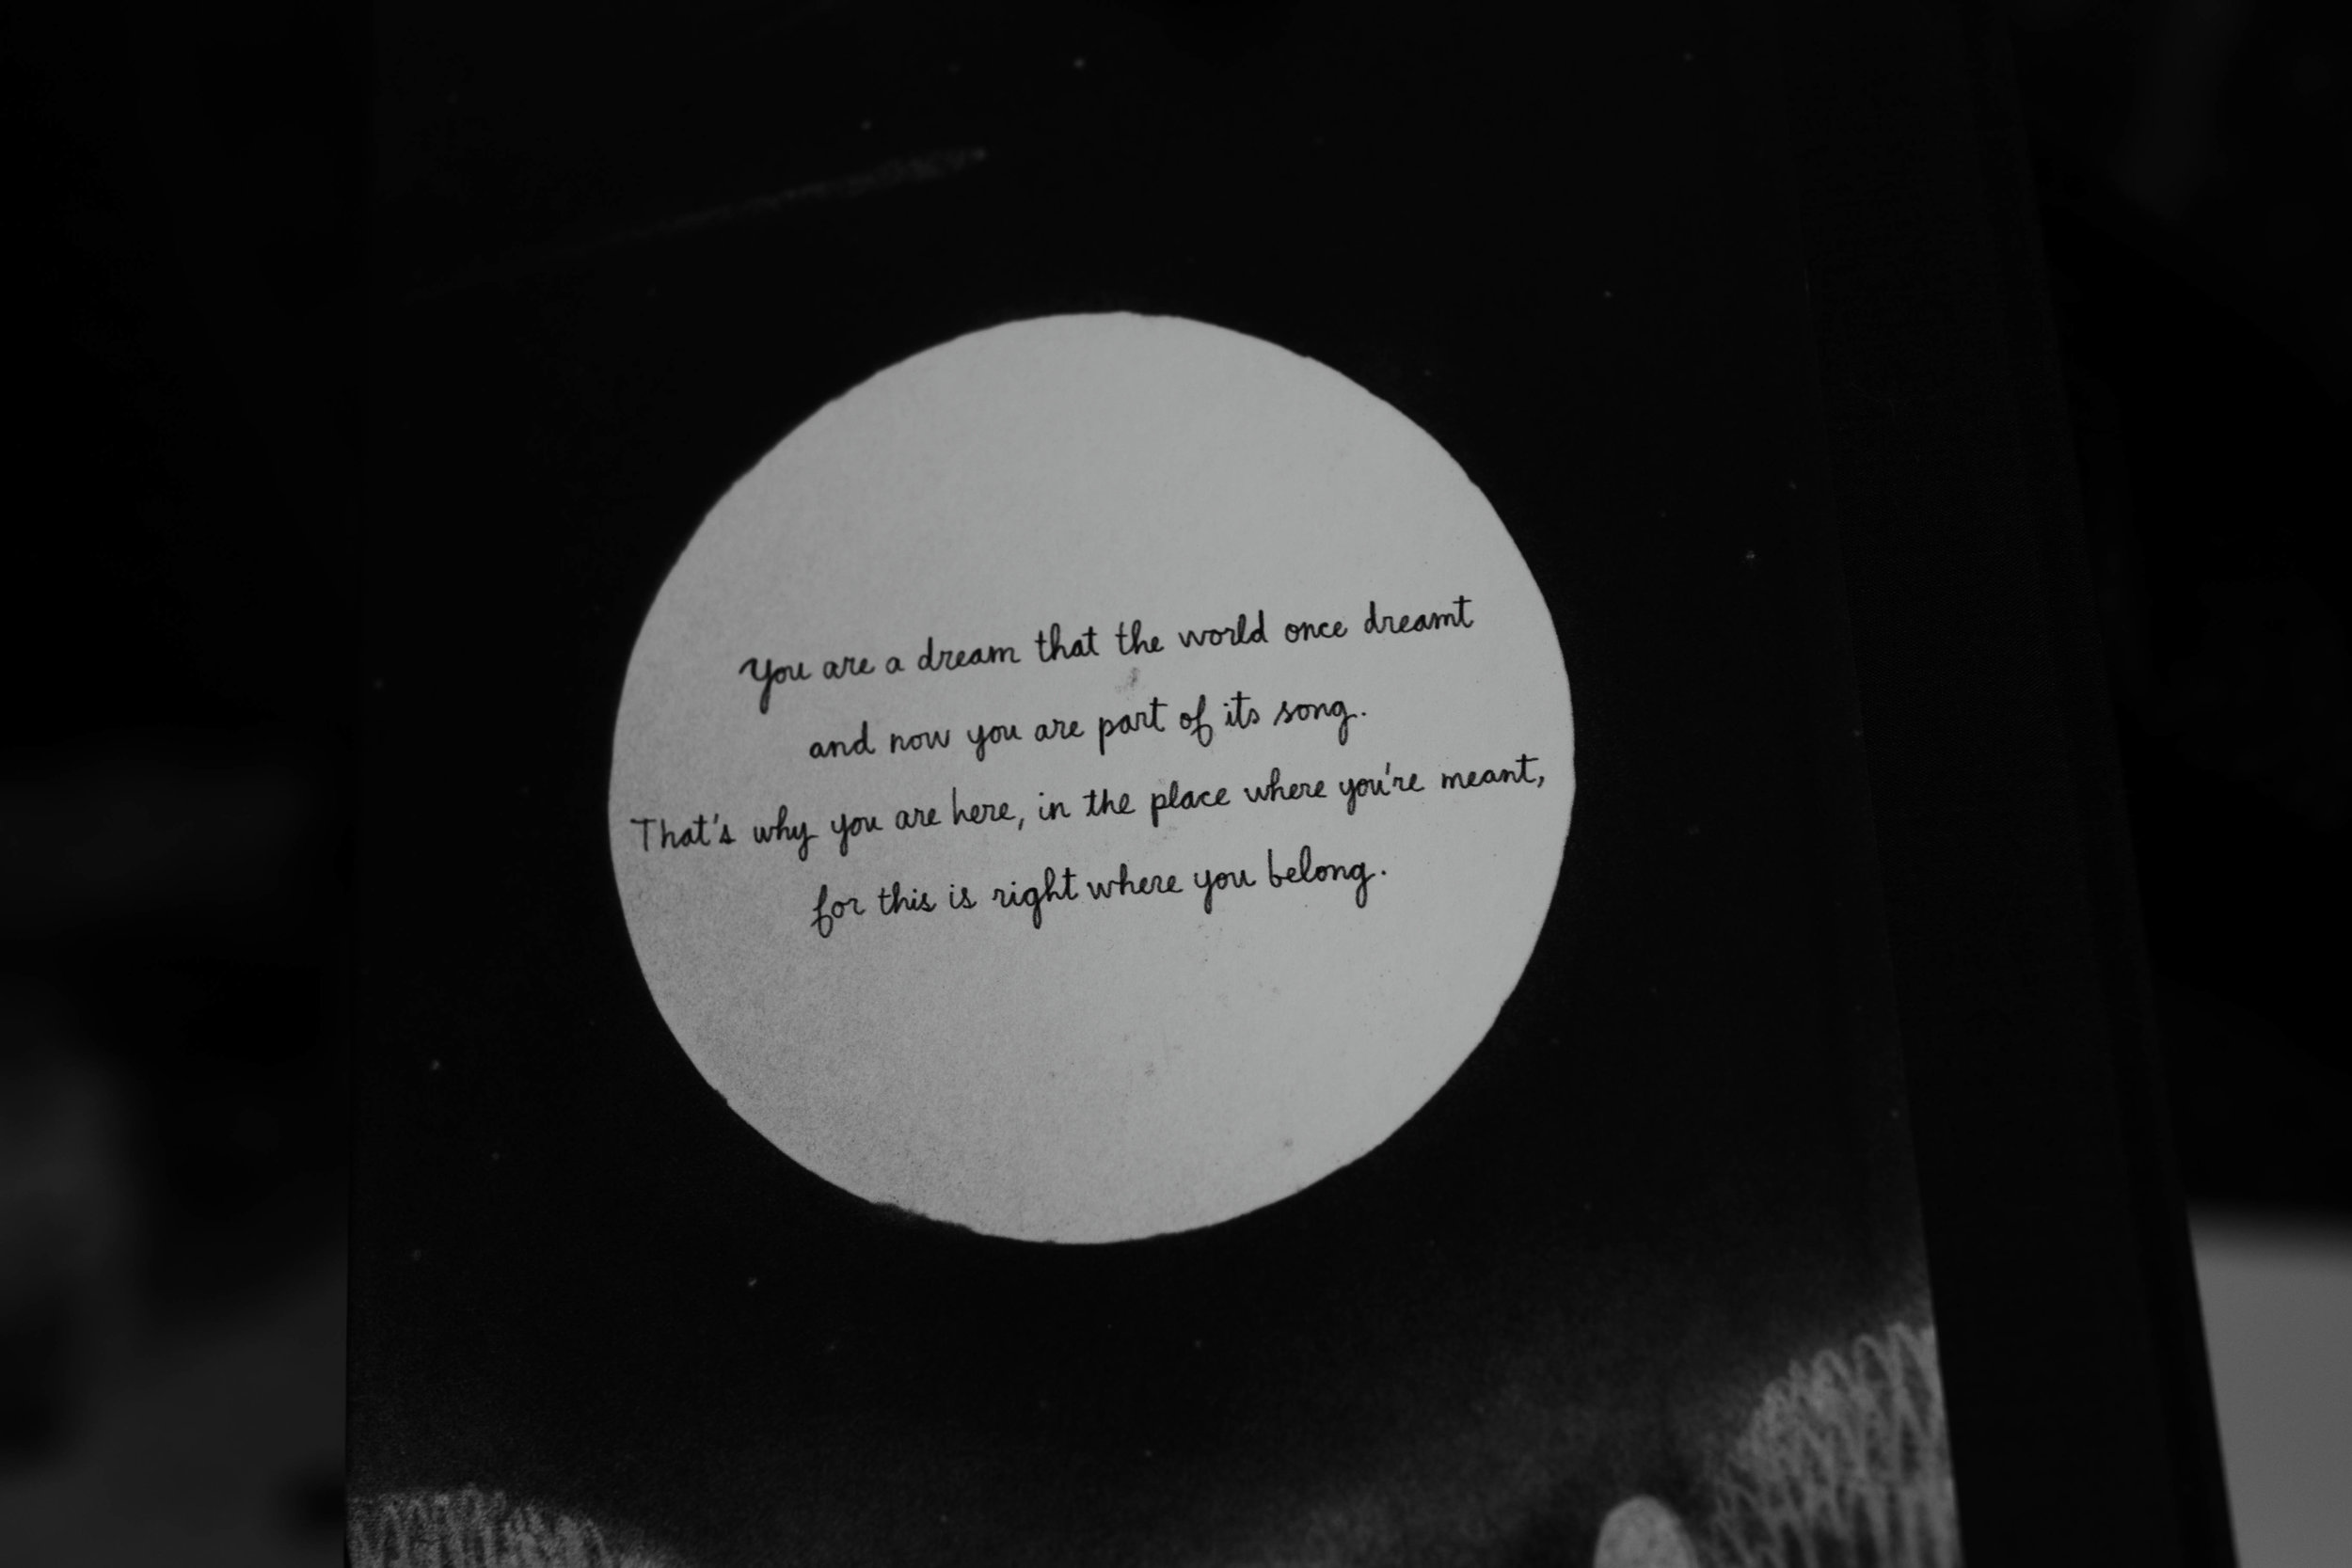 You are a dream that the world once dreamt
and now you are part of its song.
That's why you are here, in the place where you're meant,
for this is right where you belong.